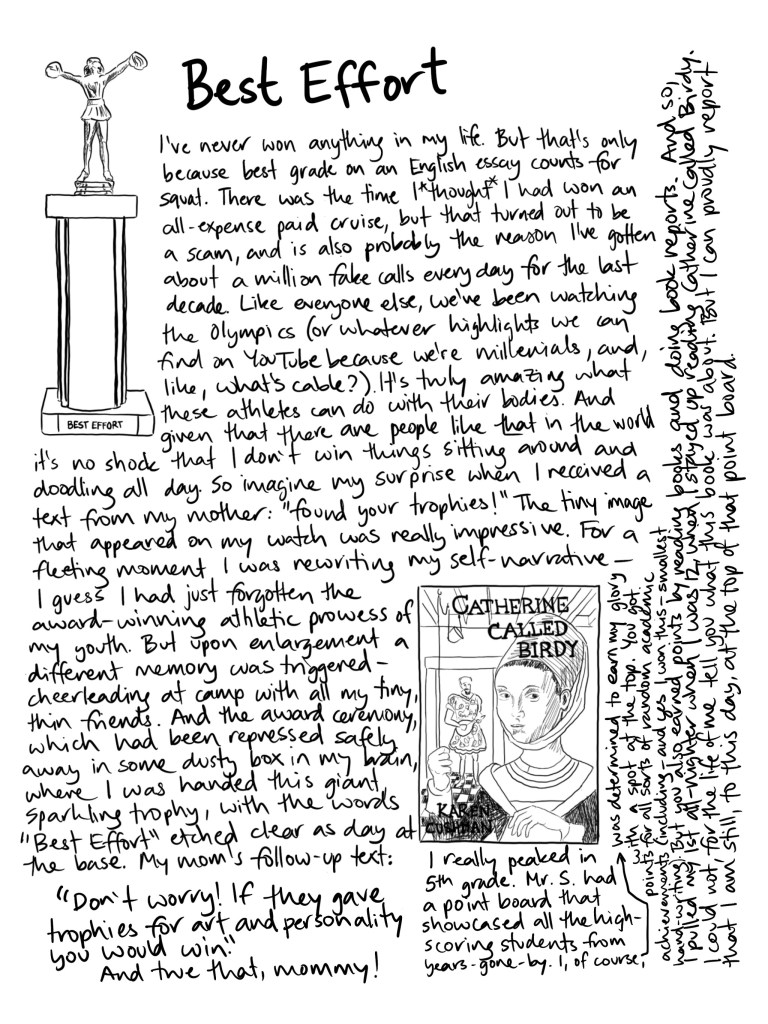 Best Effort
I've never won anything in my life. But that's only
because best grade on an English essay counts for
squat. There was the time I *thought* I had won an
all-expense paid cruise, but that turned out to be
a scam, and is also probably the reason I've gotten
about a million fake calls every day for the last
decade. Like everyone else, we've been watching
the Olympics (or whatever highlights we can
find on YouTube because we're millenials, and,
like, what's cable?). It's truly amazing what
these athletes can do with their bodies. And
given that there are people like that in the world
it's no shock that I don't win things sitting around and
doodling all day. So imagine my surprise when I received a
text from my mother: "found your trophies!" The tiny image
that appeared on my watch was really impressive. For a
fleeting moment, I was rewriting my self-narrative –
I guess I had just forgotten the
award-winning athletic prowess of
my youth. But upon enlargement a
different memory was triggered –
cheerleading at camp with all my tiny,
thin friends. And the award ceremony,
which had been repressed safely
away in some dusty box in my brain,
where I was handed this giant,
sparkling trophy, with the words
"Best Effort" etched clear as day at
the base. My mom's follow-up text:
"Don't worry! If they gave
trophies for art and personality
you would win."
And true that, mommy!
BEST EFFORT
CATHERINE
CALLED
BIRDY
KAREN
CUSHMAN
I really peaked in
5th grade. Mr. S. had
a point board that
showcased all the high-
scoring students from
years-gone-by. I, of course,
was determined to earn my glory
with a spot at the top. You got
points for all sorts of random academic
achievements (including – and yes, I won this – smallest
hand-writing). But you also earned points by reading books and doing book reports. And so,
I pulled my 1st all-nighter when I was 12, when I stayed up reading Catherine Called Birdy.
I could not, for the life of me tell you what this book was about. But I can proudly report
that I am still, to this day, at the top of that point board.